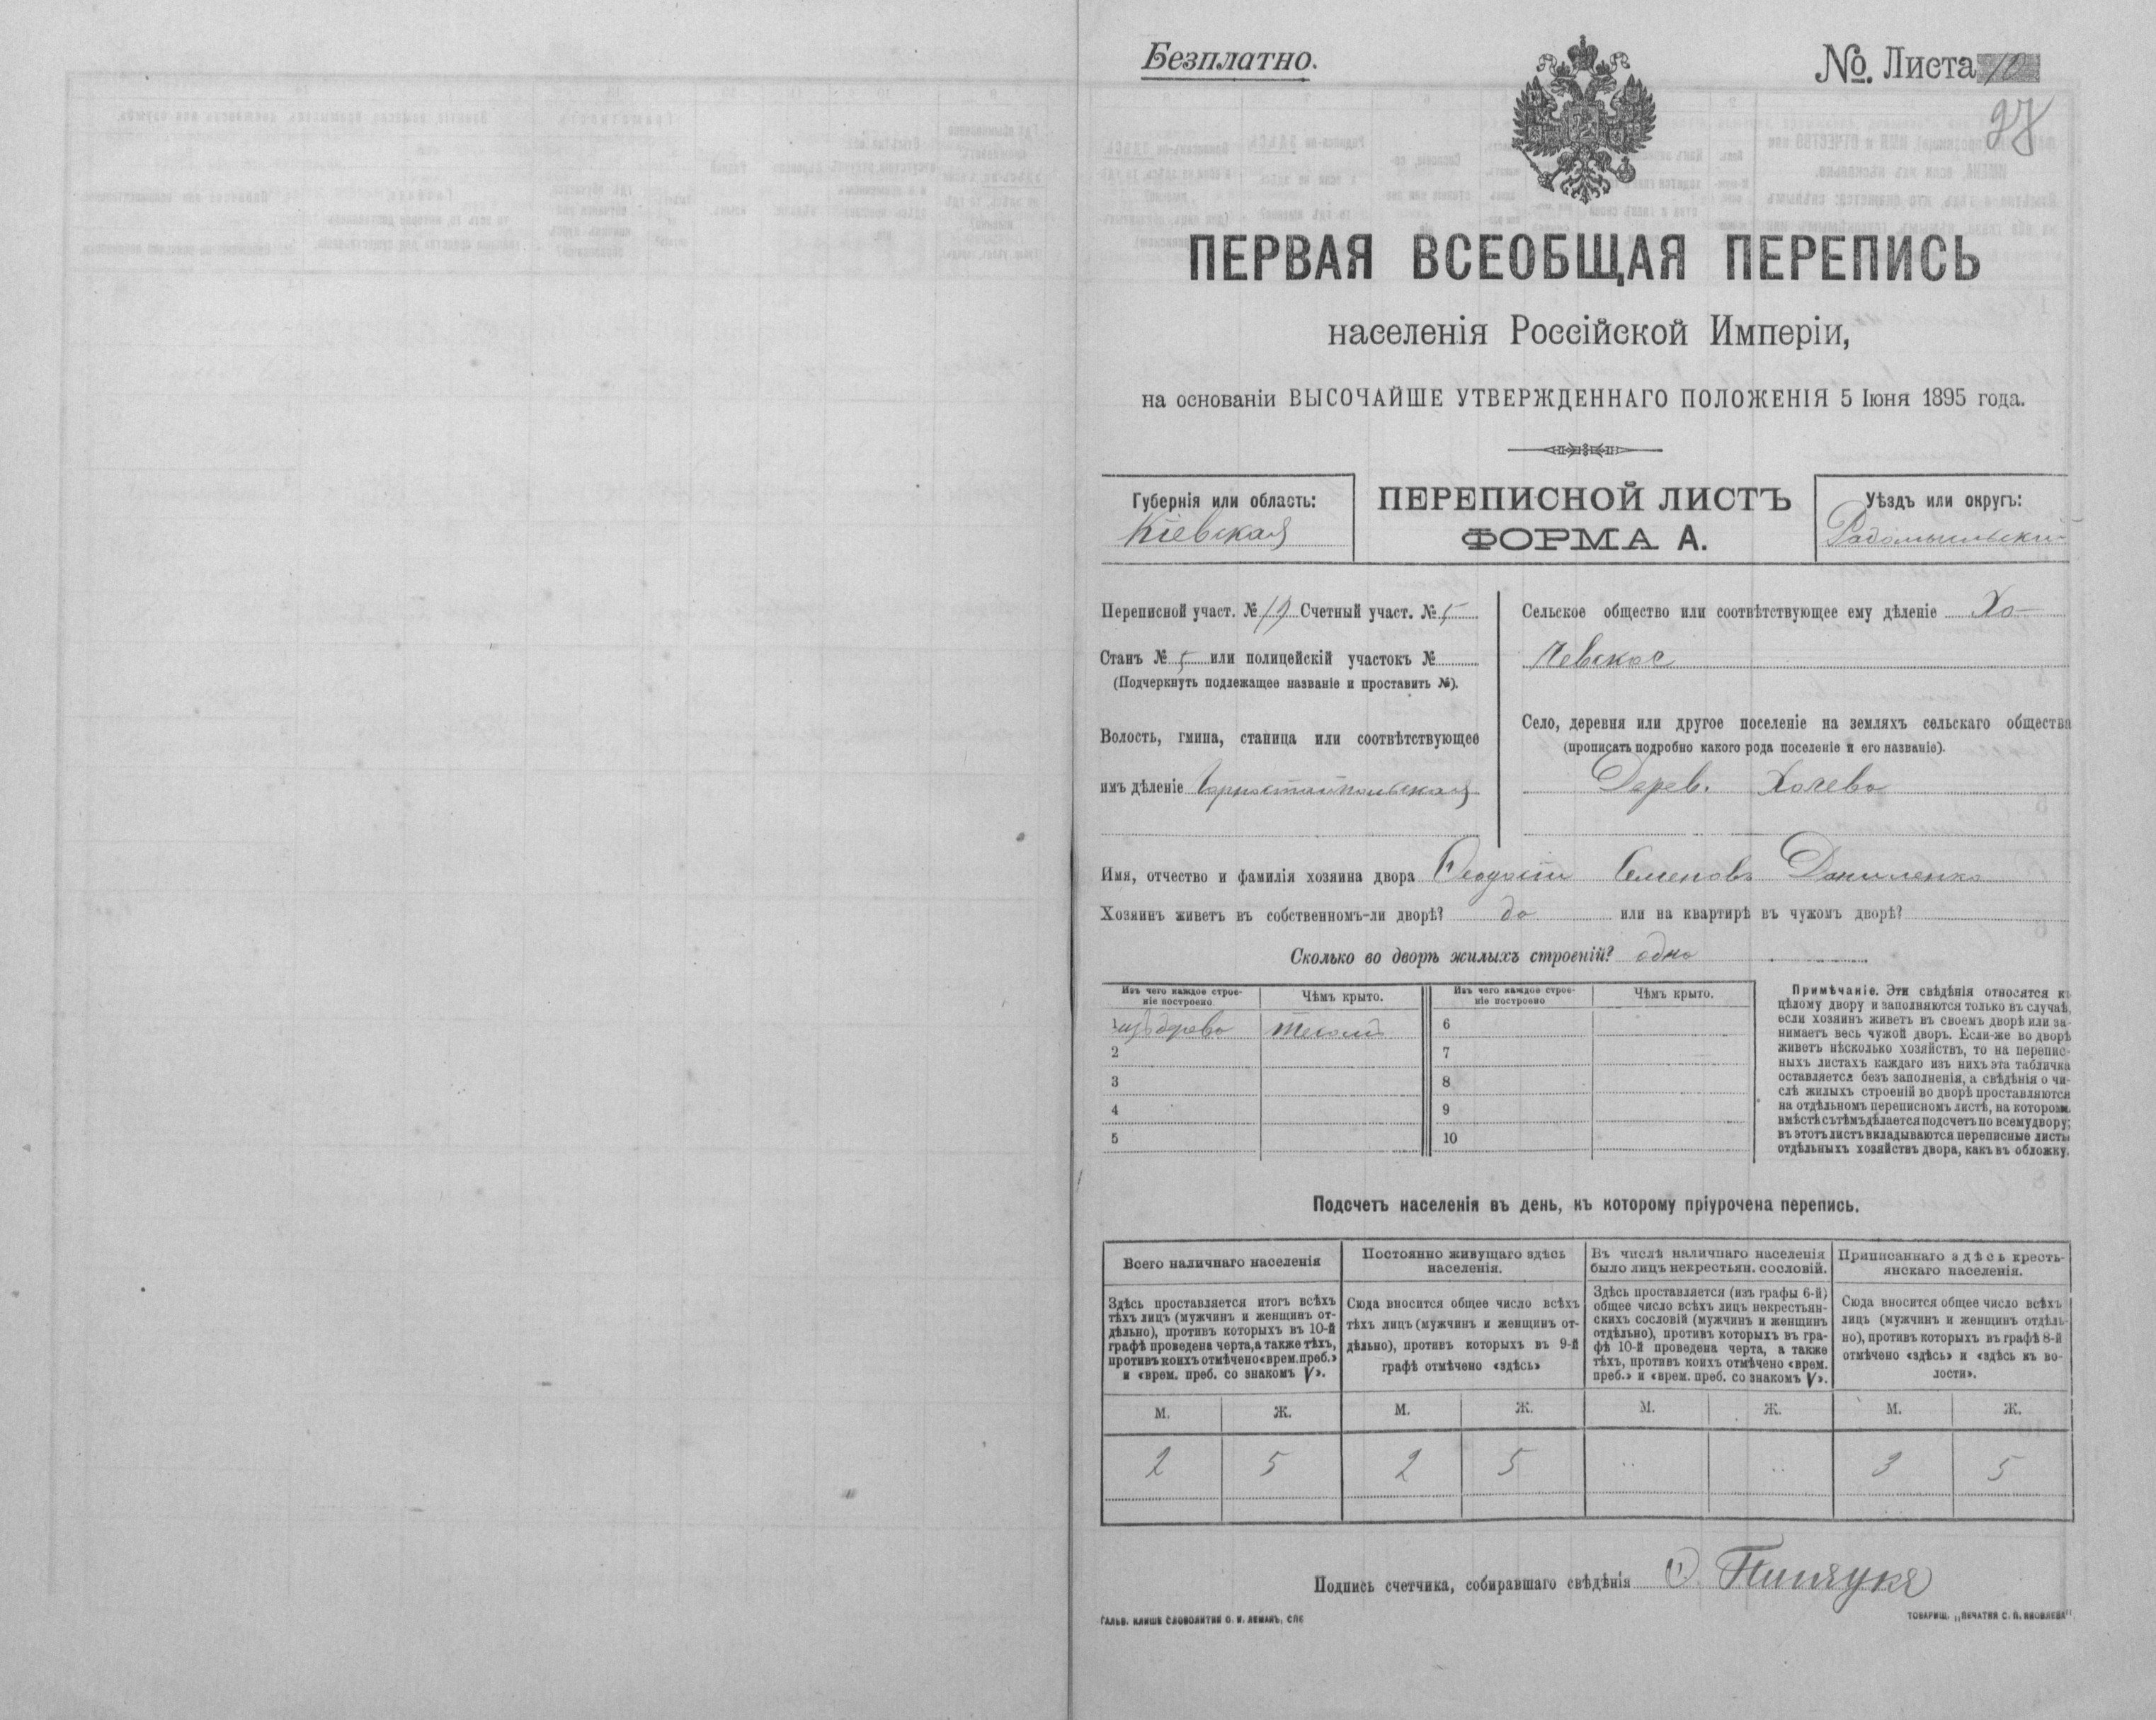 Безплатно.
№. Листа 10
27
ПЕРВАЯ ВСЕОБЩАЯ ПЕРЕПИСЬ
населенія Россійской Имперіи,
на основаніи ВЫСОЧАЙШЕ УТВЕРЖДЕННАГО ПОЛОЖЕНІЯ 5 Іюня 1895 года.
Губернія или область:
Кіевская
ПЕРЕПИСНОЙ ЛИСТЪ
ФОРМА А.
Уѣздъ или округъ:
Радомысльскій
Переписной участ. № 19 Счетный участ. № 5
Станъ № 5 или полицейскій участокъ №
(Подчеркнуть подлежащее названіе и проставить №).
Волость, гмина, станица или соотвѣтствующее
имъ дѣленіе Горностайпольская
Сельское общество или соотвѣтствующее ему дѣленіе Хо-
чевское
Село, деревня или другое поселеніе на земляхъ сельскаго общества
(прописать подробно какого рода поселеніе и его названіе).
Дерев. Хочева
Имя, отчество и фамилія хозяина двора Феодосій Семеновъ Даниленко
Хозяинъ живетъ въ собственномъ-ли дворѣ? да или на квартирѣ въ чужомъ дворѣ?
Сколько во дворѣ жилыхъ строеній? одно
Изъ чего каждое строе-
ніе построено.
Чѣмъ крыто.
Изъ чего каждое строе-
ніе построено
Чѣмъ крыто.
1 изъ дерева
6
2
7
3
8
4
9
5
10
Примѣчаніе. Эти свѣдѣнія относятся къ
цѣлому двору и заполняются только въ случаѣ,
если хозяинъ живетъ въ своемъ дворѣ или за-
нимаетъ весь чужой дворъ. Если-же во дворѣ
живетъ нѣсколько хозяйствъ, то на перепис-
ныхъ листахъ каждаго изъ нихъ эта табличка
оставляется безъ заполненія, а свѣдѣнія о чи-
слѣ жилыхъ строеній во дворѣ проставляются
на отдѣльномъ переписномъ листѣ, на которомъ
вмѣстѣ съ тѣмъ дѣлается подсчетъ по всему двору;
въ этотъ листъ вкладываются переписные листы
отдѣльныхъ хозяйствъ двора, какъ въ обложку.
Подсчетъ населенія въ день, къ которому пріурочена перепись.
Всего наличнаго населенія
Здѣсь проставляется итогъ всѣхъ
тѣхъ лицъ (мужчинъ и женщинъ от-
дѣльно), противъ которыхъ въ 10-й
графѣ проведена черта, а также тѣхъ,
противъ коихъ отмѣчено «врем. преб.»
и «врем. преб. со знакомъ V».
Постоянно живущаго здѣсь
населенія.
Сюда вносится общее число всѣхъ
тѣхъ лицъ (мужчинъ и женщинъ от-
дѣльно), противъ которыхъ въ 9-й
графѣ отмѣчено «здѣсь»
Въ числѣ наличнаго населенія
было лицъ некрестьян. сословій.
Здѣсь проставляется (изъ графы 6-й)
общее число всѣхъ лицъ некрестьян-
скихъ сословій (мужчинъ и женщинъ
отдѣльно), противъ которыхъ въ гра-
фѣ 10-й проведена черта, а также
тѣхъ, противъ коихъ отмѣчено «врем.
преб.» и «врем. преб. со знакомъ V».
Приписаннаго здѣсь кресть-
янскаго населенія.
Сюда вносится общее число всѣхъ
лицъ (мужчинъ и женщинъ отдѣль-
но), противъ которыхъ въ графѣ 8-й
отмѣчено «здѣсь» и «здѣсь къ во-
лости».
М. Ж. М. Ж. М. Ж. М. Ж.
2 5 2 5 .. .. 3 5
Подпись счетчика, собиравшаго свѣдѣнія
ГАЛЬВ. КЛИШЕ СЛОВОЛИТНИ О. И. ЛЕМАНЪ, СПб
ТОВАРИЩ. „ПЕЧАТНЯ С. П. ЯКОВЛЕВА"